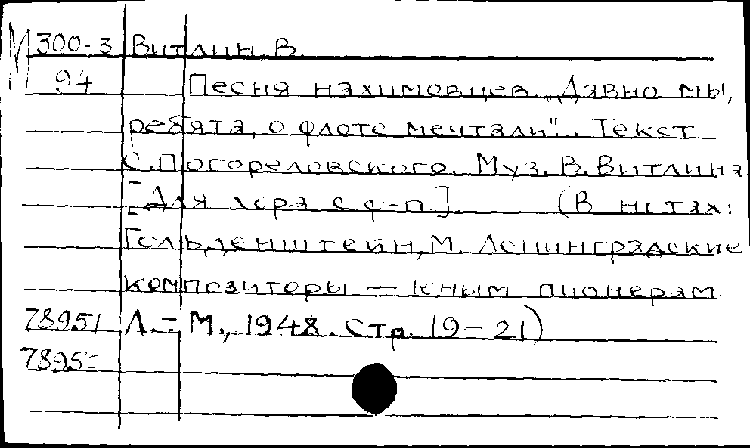 М 300-3 Витлин В.
94 Песня нахимовцев „Давно мы,
ребята, о флоте мечтали". Текст
С. Погореловского. Муз. В. Витлина
[Для хора с ф-п.] (В нотах:
Гольденштейн, М. Ленинградские
композиторы — юным пионерам
78951 Л.-М., 1948. Стр. 19-21)